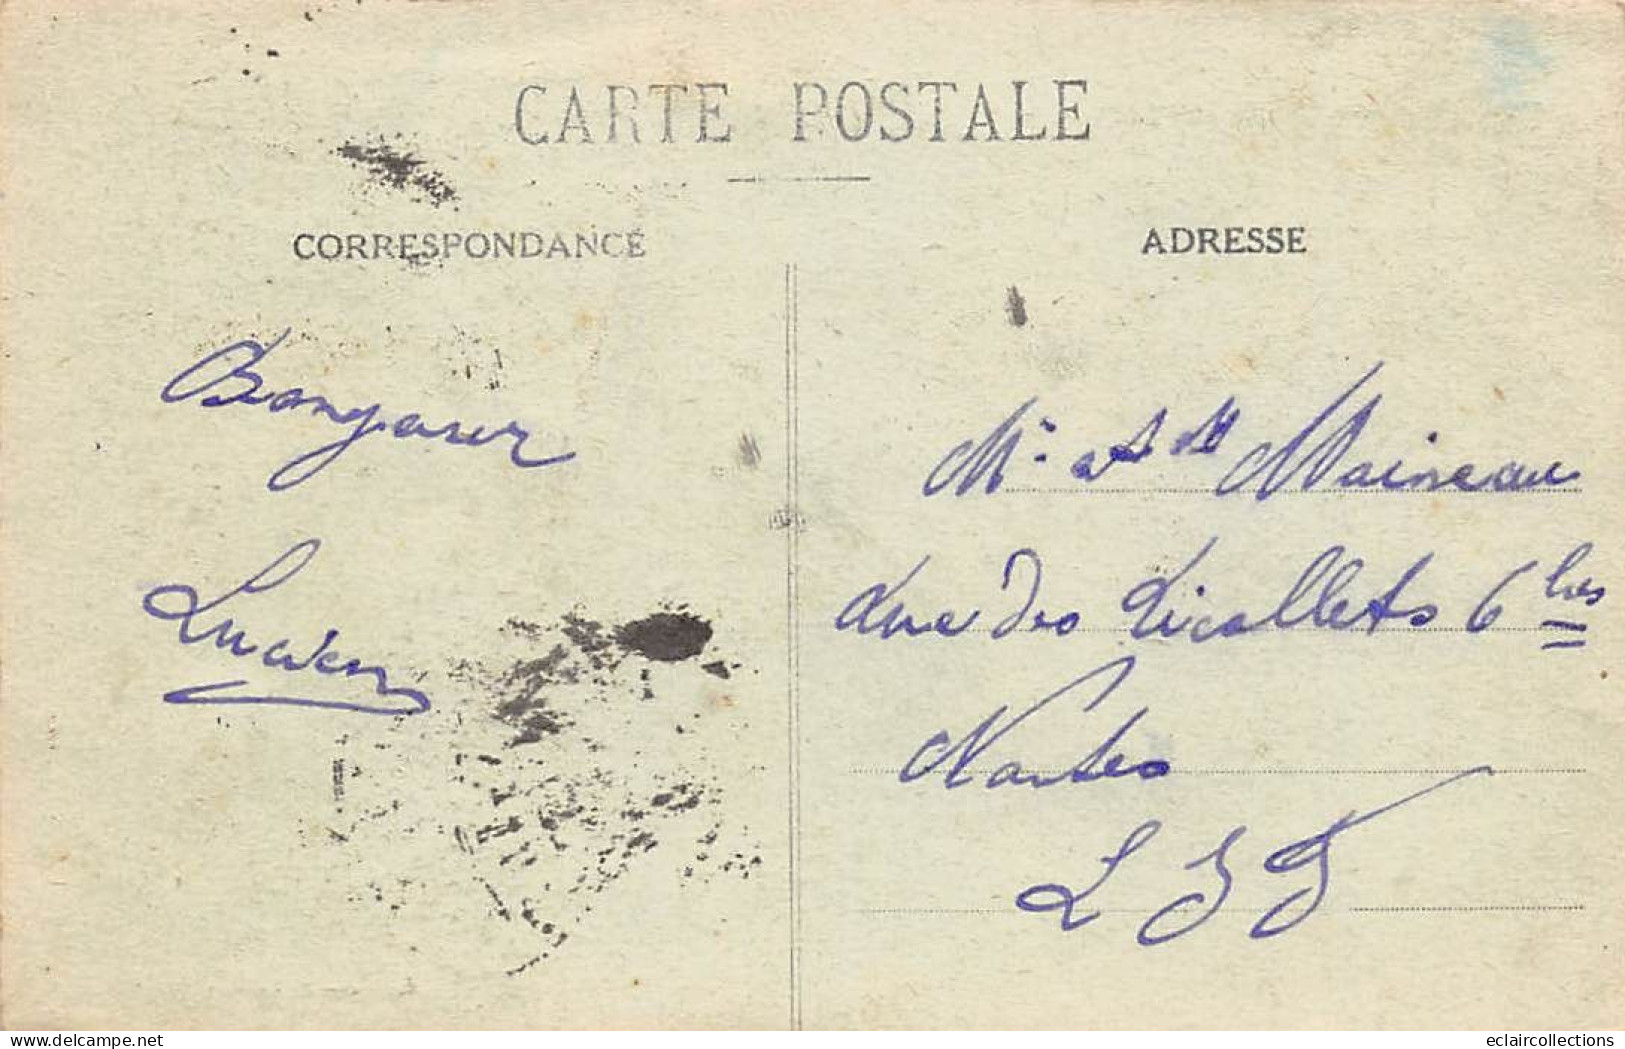 CARTE POSTALE
CORRESPONDANCE
ADRESSE
Bonjour
Lucien
Mr et Me Maineau
rue des Récollets 6 bis
Nantes
L I
delcampe.net
eclaircollections